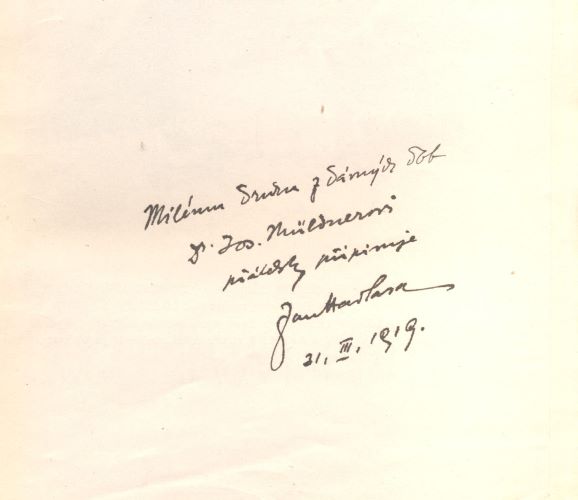 Milému druhu z dávných dob
Dr. Jos. Müldnerovi
přátelsky připisuje
Jan Havlasa
31. III. 1919.